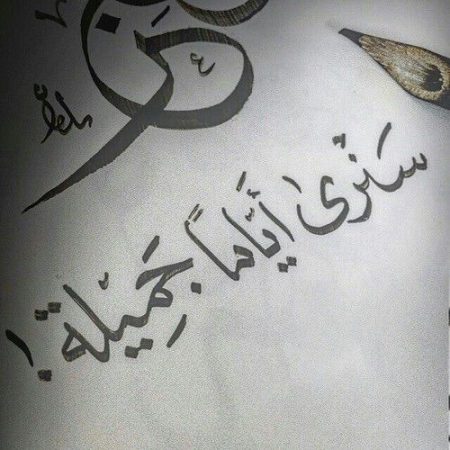 سَنَرىٰ أيّاماً جَمِيْلة !